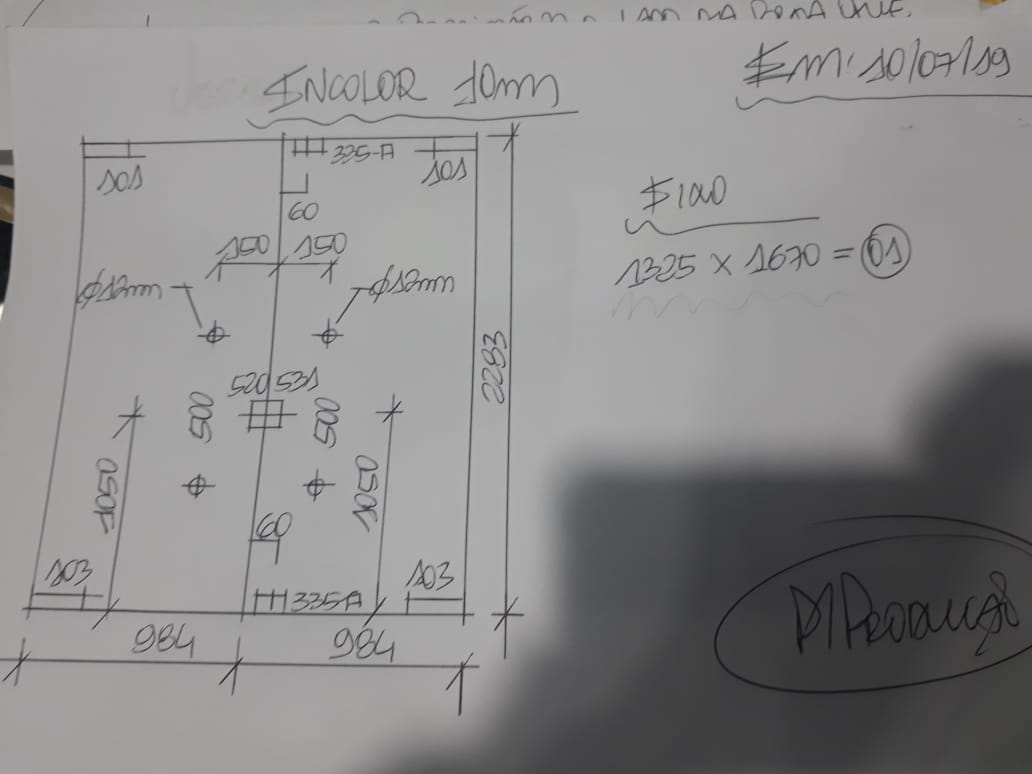 INCOLOR 10mm
Em: 10/07/19
101
335-A
101
60
150
150
Ø12mm
Ø12mm
FIXO
1325 x 1670 = 01
2283
520
531
500
500
1050
1050
60
103
335A
103
984
984
P/Produção